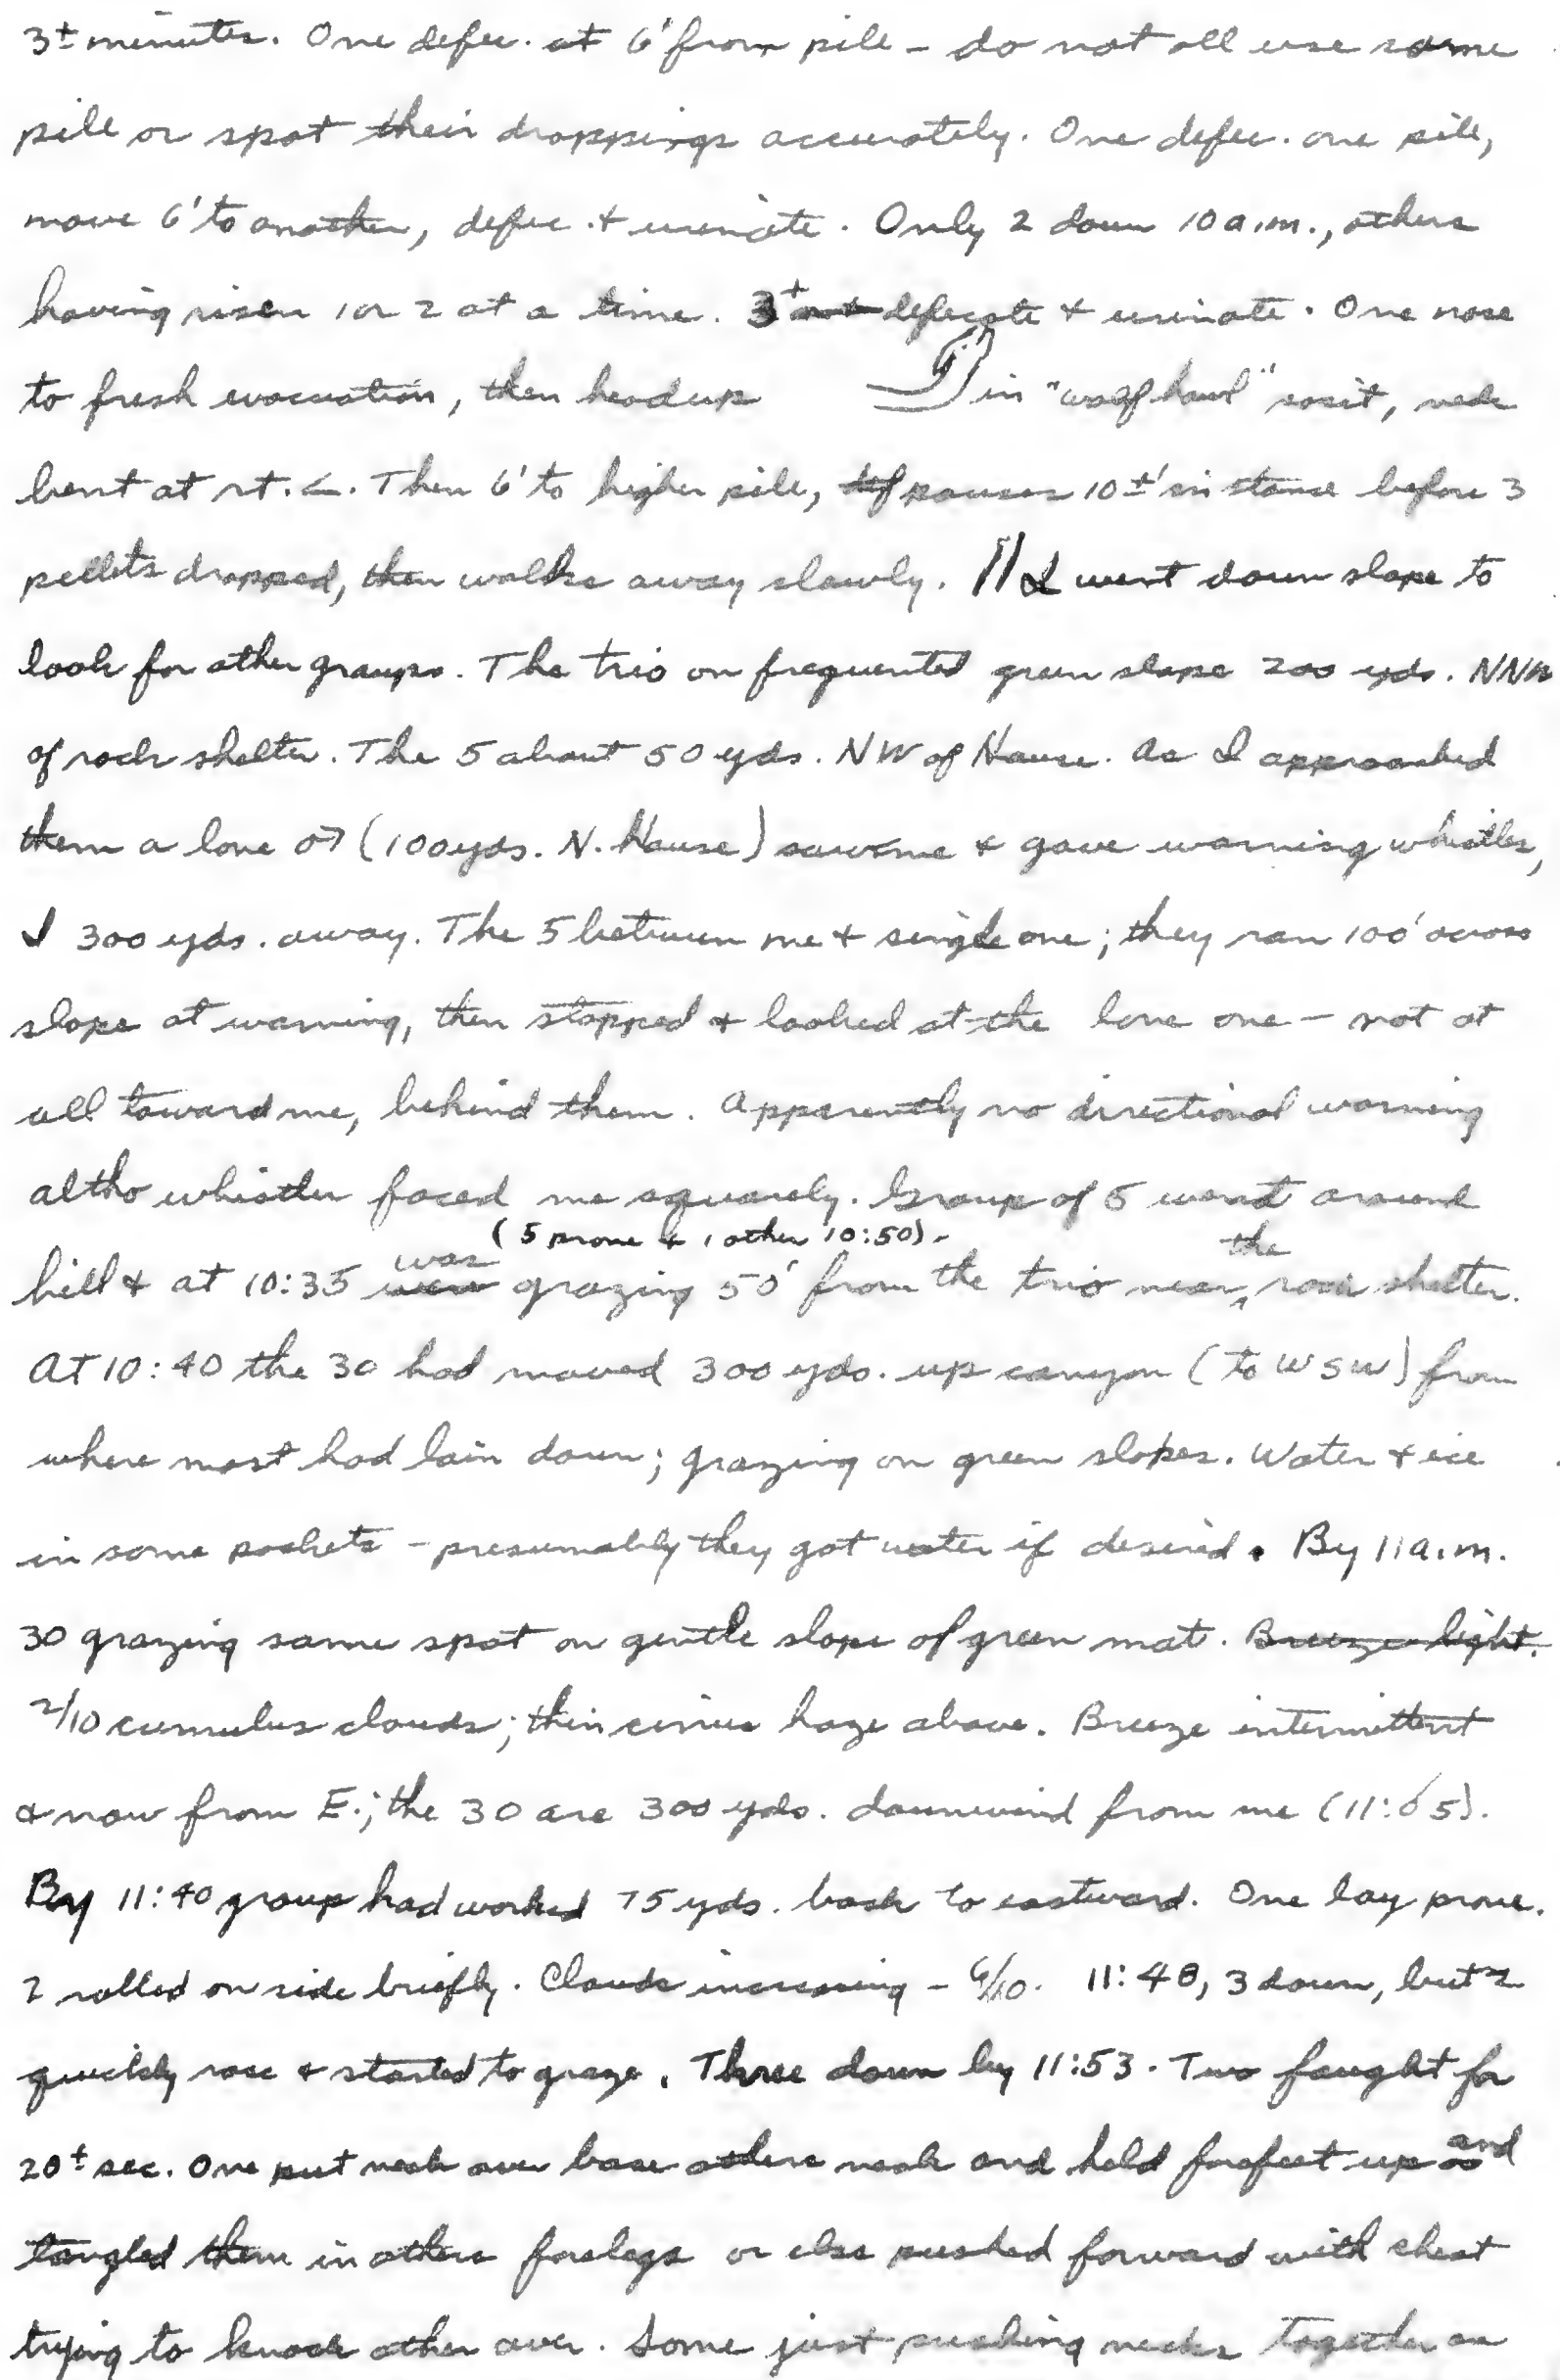 3± minutes. One defec. at 6' from pile - do not all use same
pile or spot their droppings accurately. One defec. one pile,
move 6' to another, defec. + urinate. Only 2 down 10 a.m., others
having risen 1 or 2 at a time. 3+ defecate + urinate. One nose
to fresh evacuation, then head up in "wolf howl" posit, neck
bent at rt. <. Then 6' to higher pile, pauses 10±' in stance before 3
pellets dropped, then walks away slowly. // I went down slope to
look for other groups. The trio on frequented green slope 200 yds. NNW
of rock shelter. The 5 about 50 yds. NW of House. As I approached
them a lone ♂ (100 yds. N. House) saw me + gave warning whistles,
I 300 yds. away. The 5 between me + single one; they ran 100' across
slope at warning, then stopped + looked at the lone one - not at
all toward me, behind them. Apparently no directional warning
altho whistler faced me squarely. Group of 5 went around
(5 prone + 1 other 10:50).
hill + at 10:35 was grazing 50' from the trio near the rock shelter.
At 10:40 the 30 had moved 300 yds. up canyon (to WSW) from
where most had lain down; grazing on green slopes. Water + ice
in some pockets - presumably they got water if desired. By 11 a.m.
30 grazing same spot on gentle slope of green mat. Breeze light.
2/10 cumulus clouds; thin cirrus haze above. Breeze intermittent
+ now from E.; the 30 are 300 yds. downwind from me (11:05).
By 11:40 group had worked 75 yds. back to eastward. One lay prone.
2 rolled on side briefly. Clouds increasing - 6/10. 11:48, 3 down, but 2
quickly rose + started to graze. Three down by 11:53. Two fought for
20± sec. One put neck over base others neck and held forefeet up and
tangled them in others forelegs or else pushed forward with chest
trying to knock other over. Some just pushing necks together as